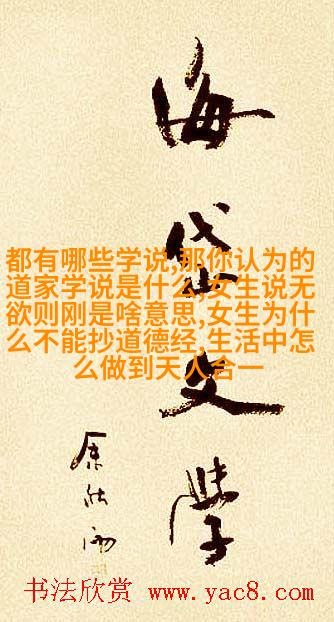 海岱文学
余秋雨
都有哪些学说,那你认为的
道家学说是什么,女生说无
欲则刚是啥意思,女生为什
么不能抄道德经,生活中怎
么做到天人合一
书法欣赏 www.yac8.com